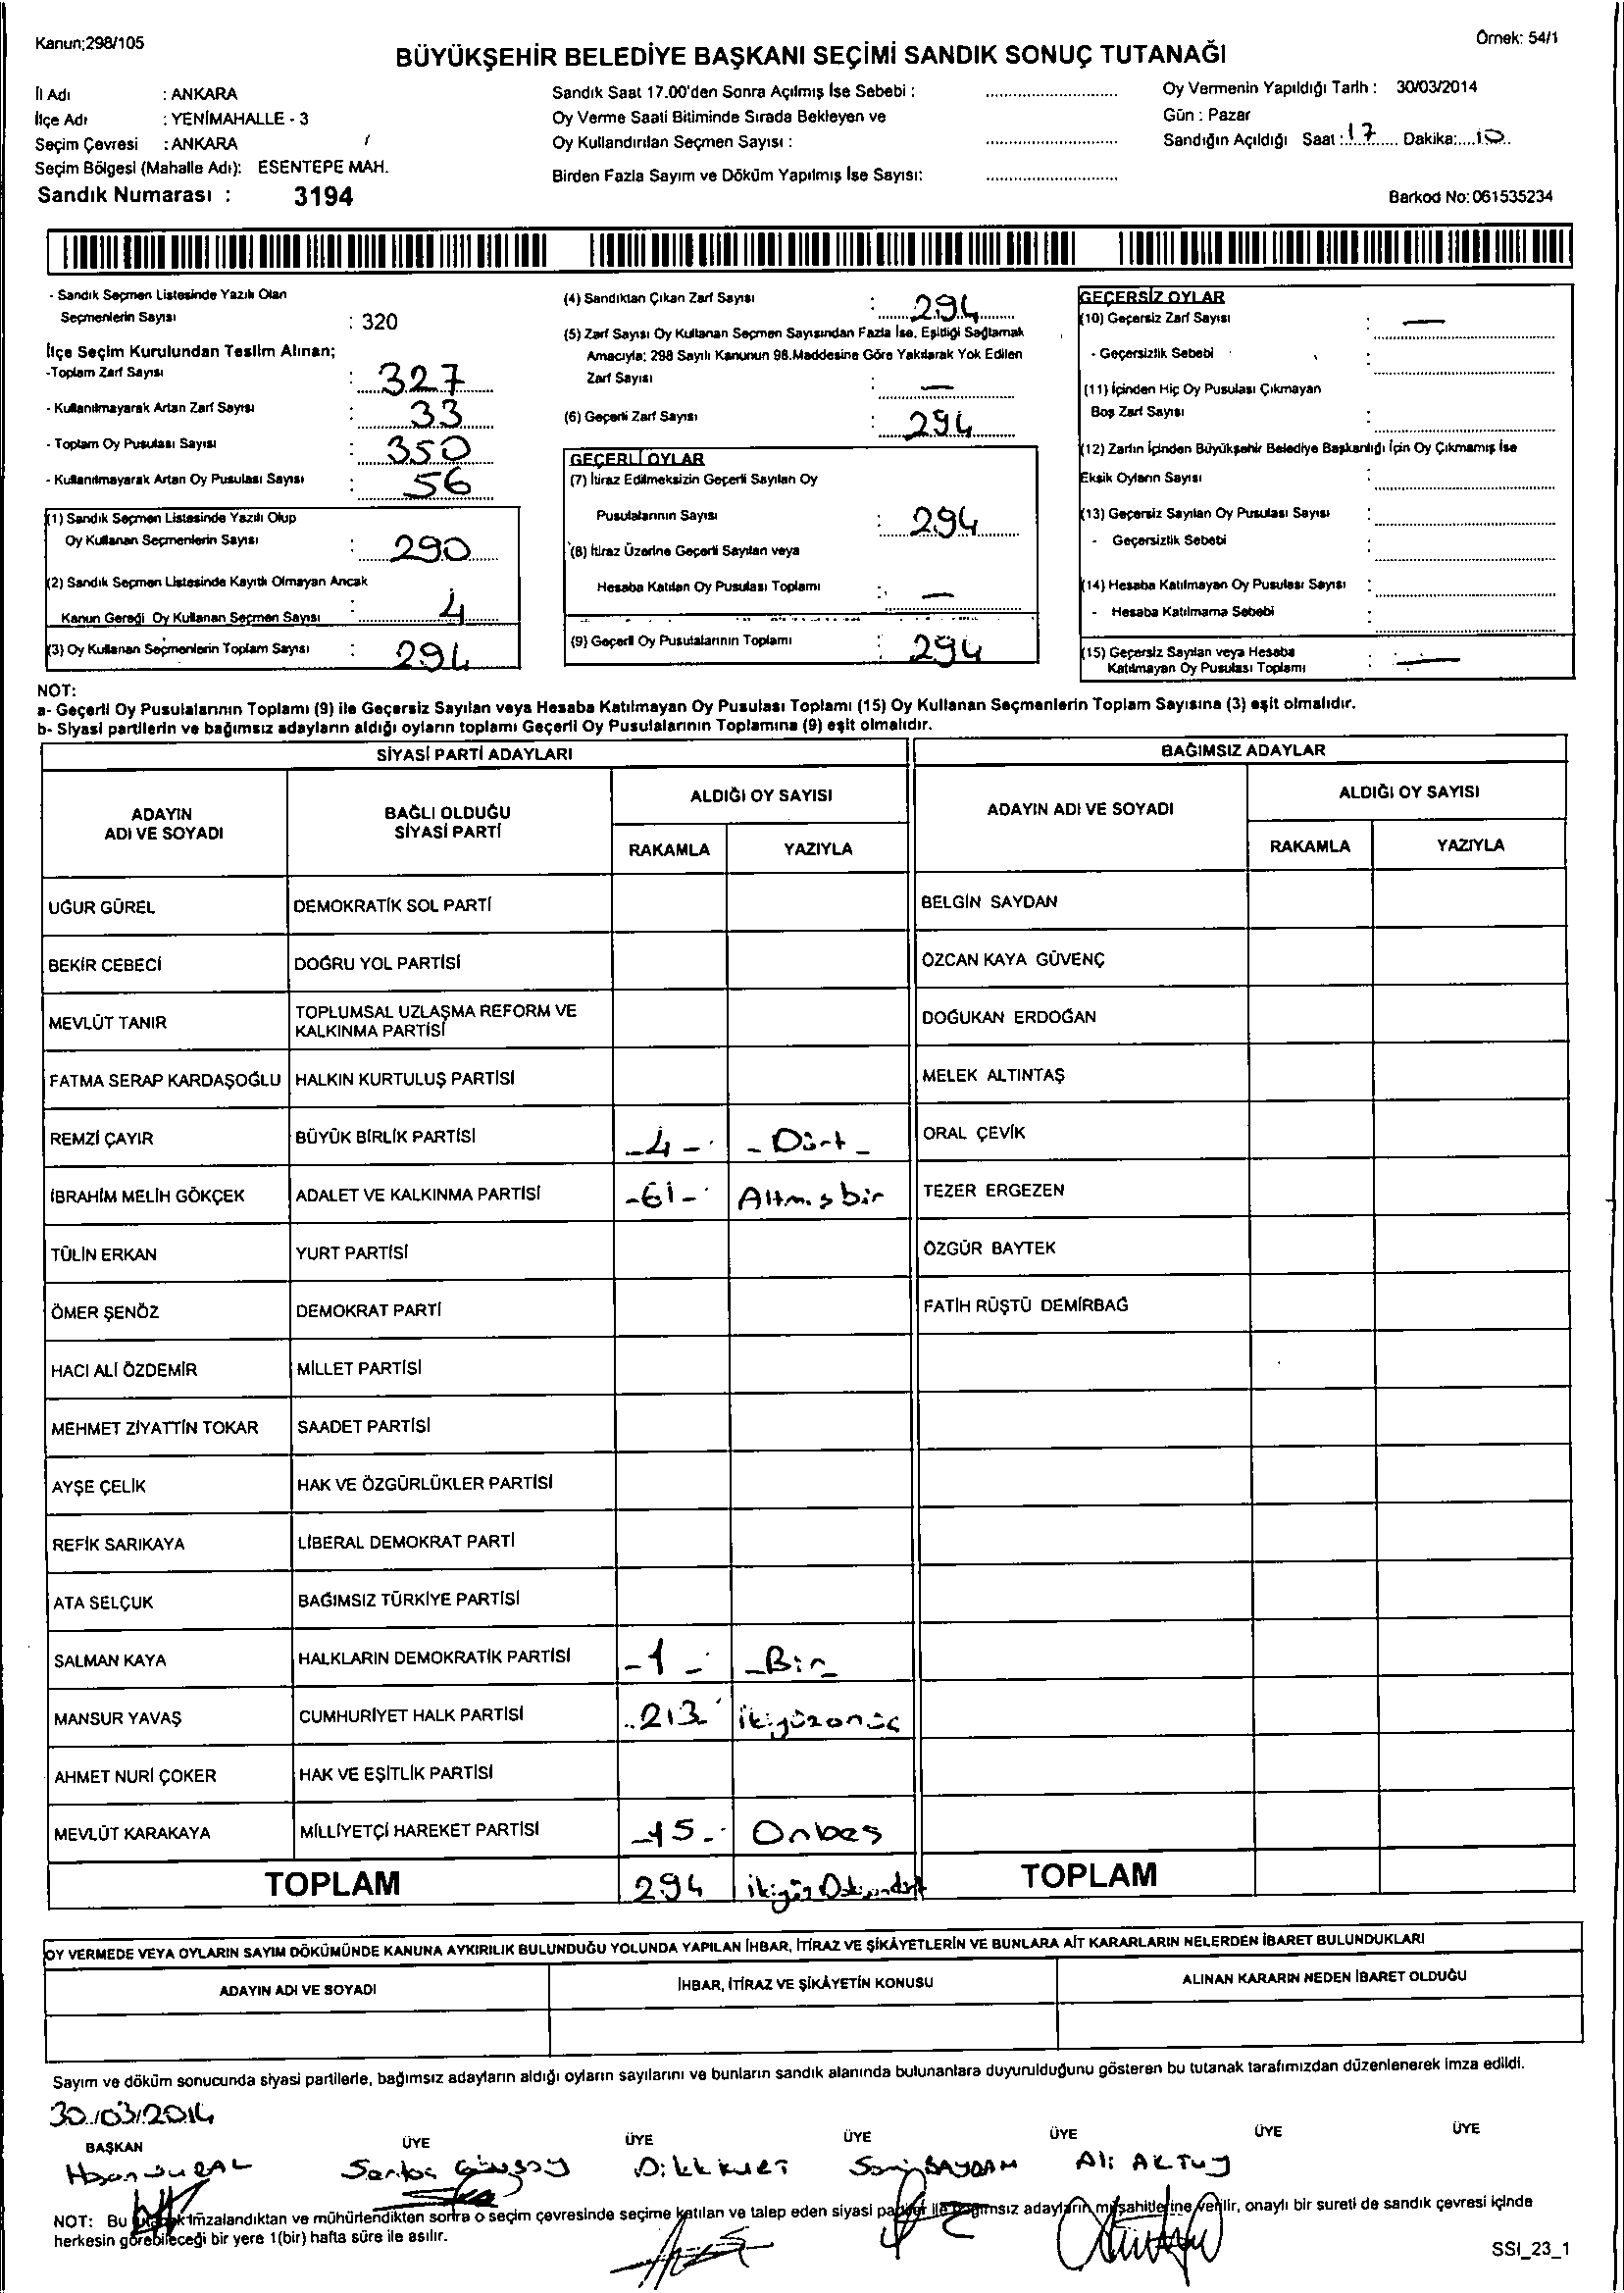 Kanun;298/105
Örnek: 54/1
BÜYÜKŞEHİR BELEDİYE BAŞKANI SEÇİMİ SANDIK SONUÇ TUTANAĞI
İl Adı : ANKARA
İlçe Adı : YENİMAHALLE - 3
Seçim Çevresi : ANKARA
Seçim Bölgesi (Mahalle Adı): ESENTEPE MAH.
Sandık Numarası : 3194
Sandık Saat 17.00'den Sonra Açılmış İse Sebebi :
Oy Verme Saati Bitiminde Sırada Bekleyen ve
Oy Kullandırılan Seçmen Sayısı :
Birden Fazla Sayım ve Döküm Yapılmış İse Sayısı:
Oy Vermenin Yapıldığı Tarih : 30/03/2014
Gün : Pazar
Sandığın Açıldığı Saat : 17 Dakika: 10
Barkod No: 061535234
- Sandık Seçmen Listesinde Yazılı Olan
Seçmenlerin Sayısı : 320
İlçe Seçim Kurulundan Teslim Alınan;
-Toplam Zarf Sayısı : 327
- Kullanılmayarak Artan Zarf Sayısı : 33
- Toplam Oy Pusulası Sayısı : 350
- Kullanılmayarak Artan Oy Pusulası Sayısı : 56
(1) Sandık Seçmen Listesinde Yazılı Olup
Oy Kullanan Seçmenlerin Sayısı : 290
(2) Sandık Seçmen Listesinde Kayıtlı Olmayan Ancak
Kanun Gereği Oy Kullanan Seçmen Sayısı : 4
(3) Oy Kullanan Seçmenlerin Toplam Sayısı : 294
(4) Sandıktan Çıkan Zarf Sayısı : 294
(5) Zarf Sayısı Oy Kullanan Seçmen Sayısından Fazla İse, Eşitliği Sağlamak
Amacıyla; 298 Sayılı Kanunun 98.Maddesine Göre Yakılarak Yok Edilen
Zarf Sayısı : —
(6) Geçerli Zarf Sayısı : 294
GEÇERLİ OYLAR
(7) İtiraz Edilmeksizin Geçerli Sayılan Oy
Pusulalarının Sayısı : 294
(8) İtiraz Üzerine Geçerli Sayılan veya
Hesaba Katılan Oy Pusulası Toplamı : —
(9) Geçerli Oy Pusulalarının Toplamı : 294
GEÇERSİZ OYLAR
(10) Geçersiz Zarf Sayısı : —
- Geçersizlik Sebebi :
(11) İçinden Hiç Oy Pusulası Çıkmayan
Boş Zarf Sayısı :
(12) Zarfın İçinden Büyükşehir Belediye Başkanlığı İçin Oy Çıkmamış İse
Eksik Oyların Sayısı :
(13) Geçersiz Sayılan Oy Pusulası Sayısı :
- Geçersizlik Sebebi :
(14) Hesaba Katılmayan Oy Pusulası Sayısı :
- Hesaba Katılmama Sebebi :
(15) Geçersiz Sayılan veya Hesaba
Katılmayan Oy Pusulası Toplamı : —
NOT:
a- Geçerli Oy Pusulalarının Toplamı (9) ile Geçersiz Sayılan veya Hesaba Katılmayan Oy Pusulası Toplamı (15) Oy Kullanan Seçmenlerin Toplam Sayısına (3) eşit olmalıdır.
b- Siyasi partilerin ve bağımsız adayların aldığı oyların toplamı Geçerli Oy Pusulalarının Toplamına (9) eşit olmalıdır.
SİYASİ PARTİ ADAYLARI BAĞIMSIZ ADAYLAR
ADAYIN ADI VE SOYADI BAĞLI OLDUĞU SİYASİ PARTİ ALDIĞI OY SAYISI ADAYIN ADI VE SOYADI ALDIĞI OY SAYISI
RAKAMLA YAZIYLA RAKAMLA YAZIYLA
UĞUR GÜREL DEMOKRATİK SOL PARTİ BELGİN SAYDAN
BEKİR CEBECİ DOĞRU YOL PARTİSİ ÖZCAN KAYA GÜVENÇ
MEVLÜT TANIR TOPLUMSAL UZLAŞMA REFORM VE KALKINMA PARTİSİ DOĞUKAN ERDOĞAN
FATMA SERAP KARDAŞOĞLU HALKIN KURTULUŞ PARTİSİ MELEK ALTINTAŞ
REMZİ ÇAYIR BÜYÜK BİRLİK PARTİSİ -4- -Dört- ORAL ÇEVİK
İBRAHİM MELİH GÖKÇEK ADALET VE KALKINMA PARTİSİ -61- Altmışbir TEZER ERGEZEN
TÜLİN ERKAN YURT PARTİSİ ÖZGÜR BAYTEK
ÖMER ŞENÖZ DEMOKRAT PARTİ FATİH RÜŞTÜ DEMİRBAĞ
HACI ALİ ÖZDEMİR MİLLET PARTİSİ
MEHMET ZİYATTİN TOKAR SAADET PARTİSİ
AYŞE ÇELİK HAK VE ÖZGÜRLÜKLER PARTİSİ
REFİK SARIKAYA LİBERAL DEMOKRAT PARTİ
ATA SELÇUK BAĞIMSIZ TÜRKİYE PARTİSİ
SALMAN KAYA HALKLARIN DEMOKRATİK PARTİSİ -1- -Bir-
MANSUR YAVAŞ CUMHURİYET HALK PARTİSİ 213 ikiyüzonüç
AHMET NURİ ÇOKER HAK VE EŞİTLİK PARTİSİ
MEVLÜT KARAKAYA MİLLİYETÇİ HAREKET PARTİSİ -15- Onbeş
TOPLAM 294 TOPLAM
OY VERMEDE VEYA OYLARIN SAYIM DÖKÜMÜNDE KANUNA AYKIRILIK BULUNDUĞU YOLUNDA YAPILAN İHBAR, İTİRAZ VE ŞİKÂYETLERİN VE BUNLARA AİT KARARLARIN NELERDEN İBARET BULUNDUKLARI
ADAYIN ADI VE SOYADI İHBAR, İTİRAZ VE ŞİKÂYETİN KONUSU ALINAN KARARIN NEDEN İBARET OLDUĞU
Sayım ve döküm sonucunda siyasi partilerle, bağımsız adayların aldığı oyların sayılarını ve bunların sandık alanında bulunanlara duyurulduğunu gösteren bu tutanak tarafımızdan düzenlenerek imza edildi.
30/03/2014
BAŞKAN ÜYE ÜYE ÜYE ÜYE ÜYE ÜYE
Ali AKTUĞ
NOT: Bu tutanak imzalandıktan ve mühürlendikten sonra o seçim çevresinde seçime katılan ve talep eden siyasi partiler ile bağımsız adayların müşahitlerine verilir, onaylı bir sureti de sandık çevresi içinde
herkesin görebileceği bir yere 1(bir) hafta süre ile asılır.
SSI_23_1